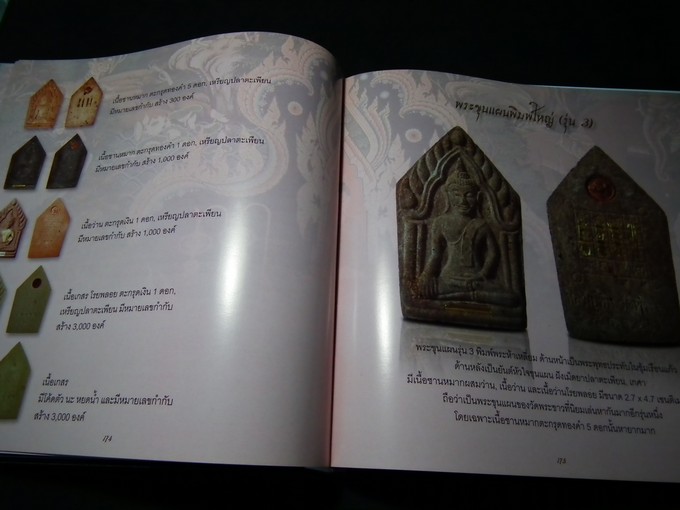 เนื้อชานหมาก ตะกรุดทองคำ 5 ดอก, เหรียญปลาตะเพียน
มีหมายเลขกำกับ สร้าง 300 องค์
เนื้อชานหมาก ตะกรุดทองคำ 1 ดอก, เหรียญปลาตะเพียน
มีหมายเลขกำกับ สร้าง 1,000 องค์
เนื้อว่าน ตะกรุดเงิน 1 ดอก, เหรียญปลาตะเพียน
มีหมายเลขกำกับ สร้าง 1,000 องค์
เนื้อเกสร โรยพลอย ตะกรุดเงิน 1 ดอก,
เหรียญปลาตะเพียน มีหมายเลขกำกับ
สร้าง 3,000 องค์
เนื้อเกสร
มีโค้ดตัว นะ หยดน้ำ และมีหมายเลขกำกับ
สร้าง 3,000 องค์
พระขุนแผนพิมพ์ใหญ่ (รุ่น 3)
พระขุนแผนรุ่น 3 พิมพ์พระห้าเหลี่ยม ด้านหน้าเป็นพระพุทธประทับในซุ้มเรือนแก้ว
ด้านหลังเป็นยันต์หัวใจขุนแผน ฝังเม็ดยาปลาตะเพียน, เกศา
มีเนื้อชานหมากผสมว่าน, เนื้อว่าน และเนื้อว่านโรยพลอย มีขนาด 2.7 x 4.7
ถือว่าเป็นพระขุนแผนของวัดพระขาวที่นิยมเล่นหากันมากอีกรุ่นหนึ่ง
โดยเฉพาะเนื้อชานหมากตะกรุดทองคำ 5 ดอกนั้นหายากมาก